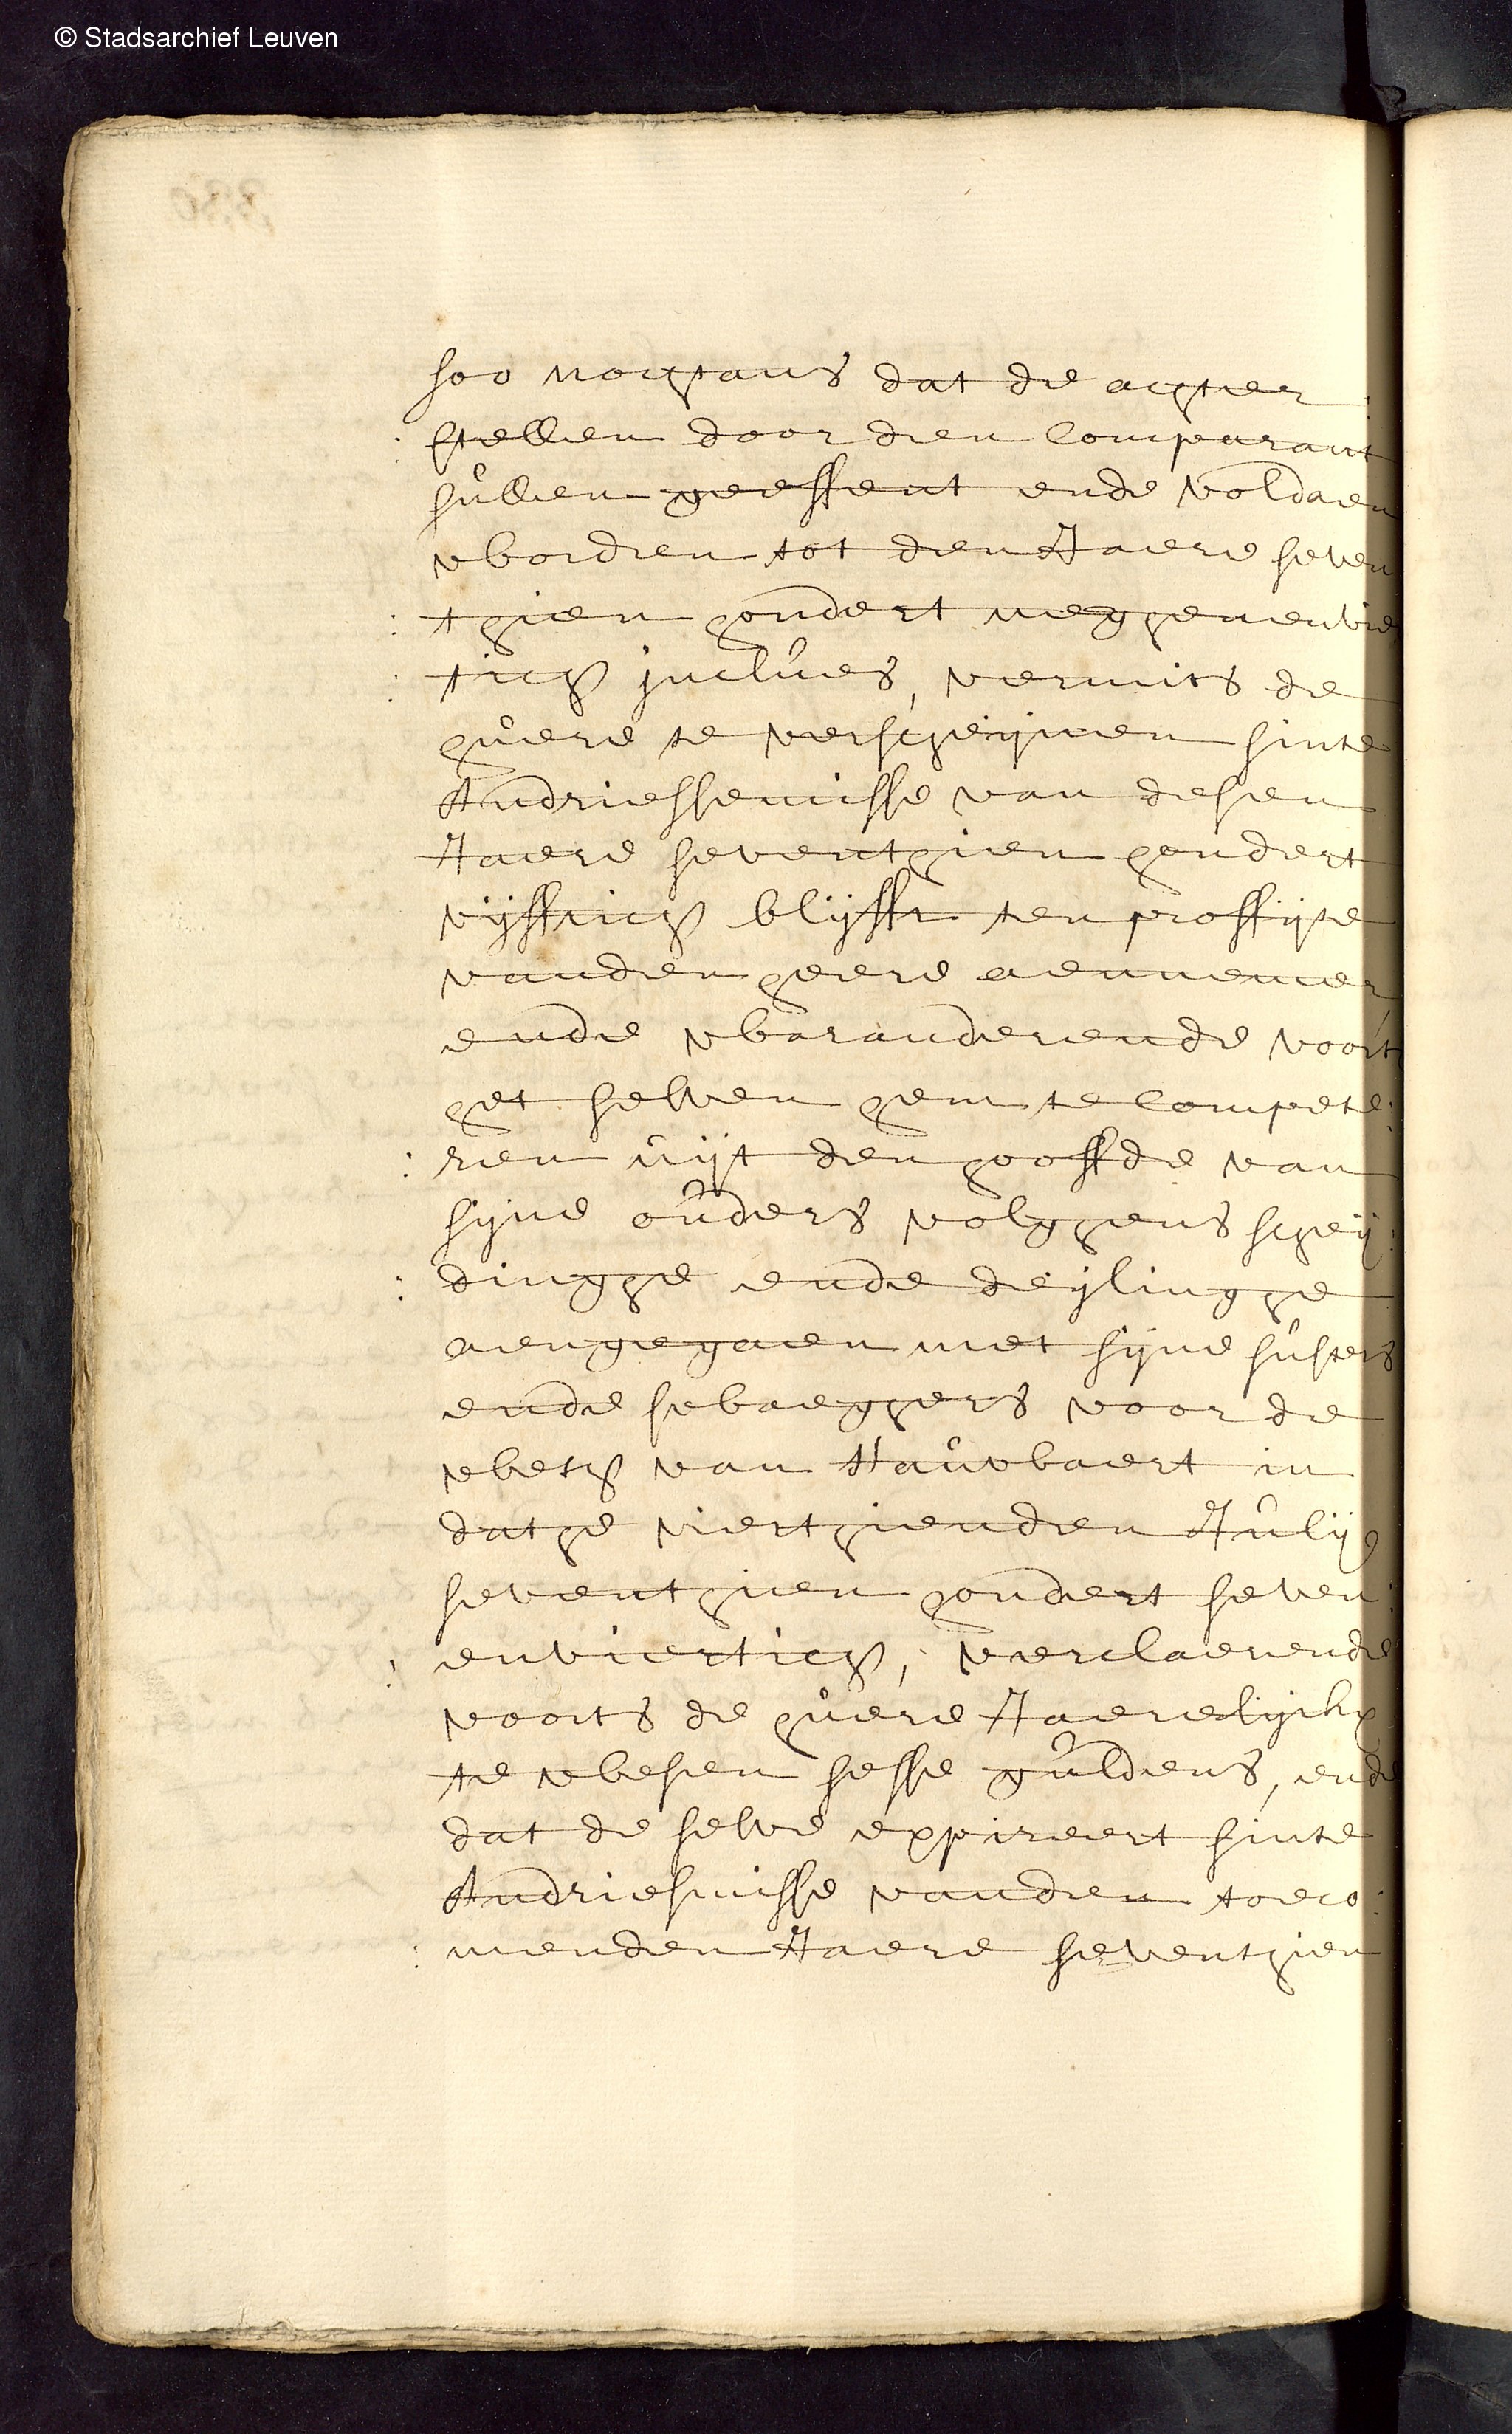 © Stadsarchief Leuven
soo nochtans dat de achter
: stellen door den Comparant
sullen geeffent ende voldaen
worden tot den Jaere seven
: thien hondert negghenenvier
: tich inclues, vermits de
huere te verscheijnen sinte
Andriessemisse van desen
Jaere seventhien hondert
vijfftich blijfft ten proffijte
vanden heere aennemer,
ende waranderende voorts
het selven hem te compete:
: ren uijt den hooffde van
sijne ouders volghens scheij:
: dinghe ende deijlinghe
aengegaen met sijne susters
ende swaeghers voor de
weth van Hauwaert in
dathe vierthienden Julij
seventhien hondert seven:
: enviertich, verclaerende
voorts de huere Jaerelijckx
te wesen sesse guldens, ende
dat de selve expireert sinte
Andriesmisse vanden toeco:
: menden Jaere seventhien